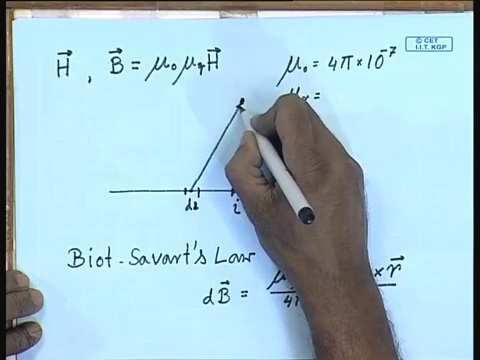 © CET
I.I.T. KGP
H⃗ , B⃗ = μ₀ μᵣ H⃗
μ₀ = 4π × 10⁻⁷
μᵣ =
dl i
Biot-Savart's Law
dB⃗ = × r⃗